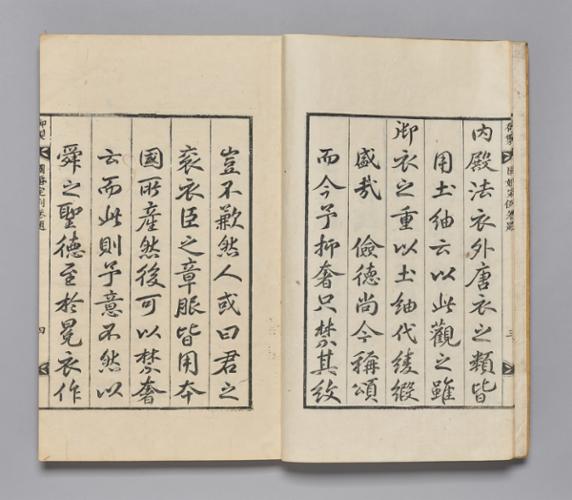 內殿法衣外唐衣之類皆
用土紬云以此觀之雖
御衣之重以土紬代綾緞
盛哉 儉德尚今稱頌
而今予抑奢只禁其紋
豈不歉然人或曰君之
袞衣臣之章服皆用本
國所產然後可以禁奢
云而此則予意不然以
舜之聖德至於冕衣作
御製
國婚定例卷題
四